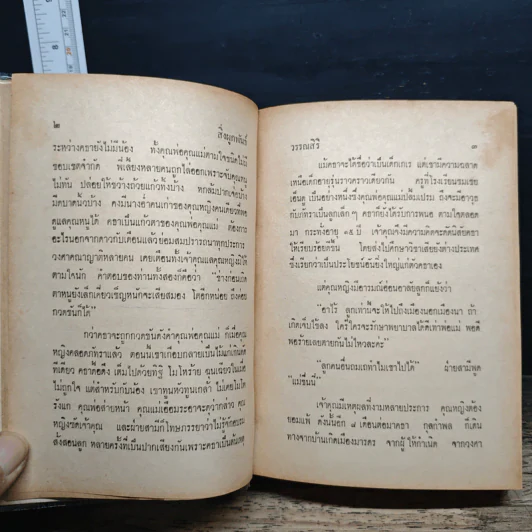 ๒
สิ่งผูกพันธ์
ระหว่างคธายังไม่มีน้อง ทั้งคุณพ่อคุณแม่ตามใจชนิดไม่มี
ขอบเขตจำกัด พี่เลี้ยงหลายคนถูกไล่ออกเพราะจับคุณหนู
ไม่ทัน ปล่อยให้ขว้างถ้วยแก้วทิ้งบ้าง หกล้มปากเจ่อบ้าง
มีดบาดนิ้วบ้าง คงมีนางอ่ำคนเก่าของคุณหญิงคนเดียวที่พอ
ดูแลคุณหนูได้ คธาเป็นแก้วตาของคุณพ่อคุณแม่ ต้องการ
อะไรนอกจากดาวกับเดือนแล้วย่อมสมปรารถนาทุกประการ
วงศาคณาญาติหลายคน เคยเตือนทั้งเจ้าคุณและคุณหญิงมิให้
ตามใจนัก คำตอบของท่านทั้งสองก็คือว่า
กวดขันก็ได้"
กว่าคธาจะถูกกวดขันดังคาคุณพ่อคุณแม่ ก็เมื่อคุณ
หญิงคลอดภัทราแล้ว ตอนนั้นเขาเกือบกลายเป็นไม้แก่เกินดัด
ไม่ถูกใจ แต่สำหรับกับน้อง เขาหูนหัวทูนเกล้า ไม่เคยไม่โต
รังแก คุณพ่อส่ายหน้า คุณแม่เอือมระอาจะดุว่ากล่าว คุณ
หญิงซัดเจ้าคุณ และฝ่ายสามีก็โทษภรรยาว่าไม่รู้จักอบรม
สั่งสอนลูก หลายครั้งที่เป็นปากเสียงกันเพราะคธาเป็นต้นเหตุ
วรรณสิริ
๓
แม้คธาจะได้รับชื่อว่าเป็นเด็กเกเร แต่เขามีความฉลาด
เหนือเด็กอายุรุ่นราวคราวเดียวกัน ครูที่โรงเรียนชมเชย
เอ็นดู เป็นอย่างหนึ่งซึ่งคุณพ่อคุณแม่ปลื้มเปรม ถึงจะมีอาวุธ
กับที่ทรามเป็นลูกเล็กๆ คธาก็ยังได้รับการพนอ ตามใจตลอด
มา กระทั่งอายุ ๑๕ ปี เจ้าคุณจึงมีความคิดจะดัดนิสัยคธา
ให้เรียบร้อยดีขึ้น โดยส่งไปศึกษาวิชาเสียยังต่างประเทศ
ซึ่งเรียกว่าเป็นประโยชน์อันยิ่งใหญ่แก่ตัวคธาเอง
แต่คุณหญิงมีอารมณ์อ่อนอาลัยลูกก็แย้งว่า
"อาไร้ ลูกเท่านี้จะให้ไปถึงเมืองนอกเมืองนา ถ้า
เกิดเจ็บไข้ลง ใครที่ไหนจะรักษาพยาบาลได้ดีเท่าพ่อแม่ พอดี
พอร้ายเลยตายกันไม่ไหวละค่ะ"
"ลูกคนอื่นถมเถทำไมเขาไปได้" ฝ่ายสามีพูด
"แม่ขึ้นนี่"
เจ้าคุณมีเหตุผลที่งามหลายประการ คุณหญิงต้อง
ยอมแพ้ ดังนั้นอีก ๘ เดือนต่อมาคธา กุลกำพล ก็เดิน
ทางจากบ้านเกิดเมืองมารดร จากผู้ให้กำเนิด จากวงศา